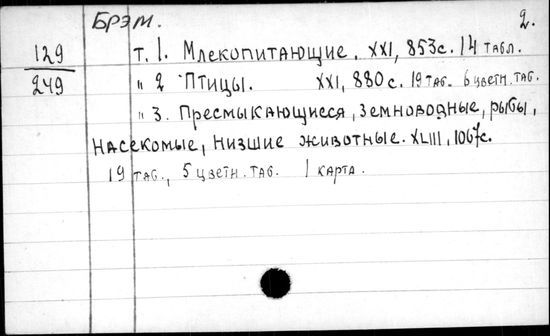 Брэм. 2.
129 т. 1. Млекопитающие. XXI, 853с. 14 табл.
249 " 2 Птицы. XXI, 880 с. 19 таб. 6 цветн. таб.
" 3. Пресмыкающиеся, земноводные, рыбы,
насекомые, низшие животные. XLIII, 1067с.
19 таб., 5 цветн. таб. 1 карта.